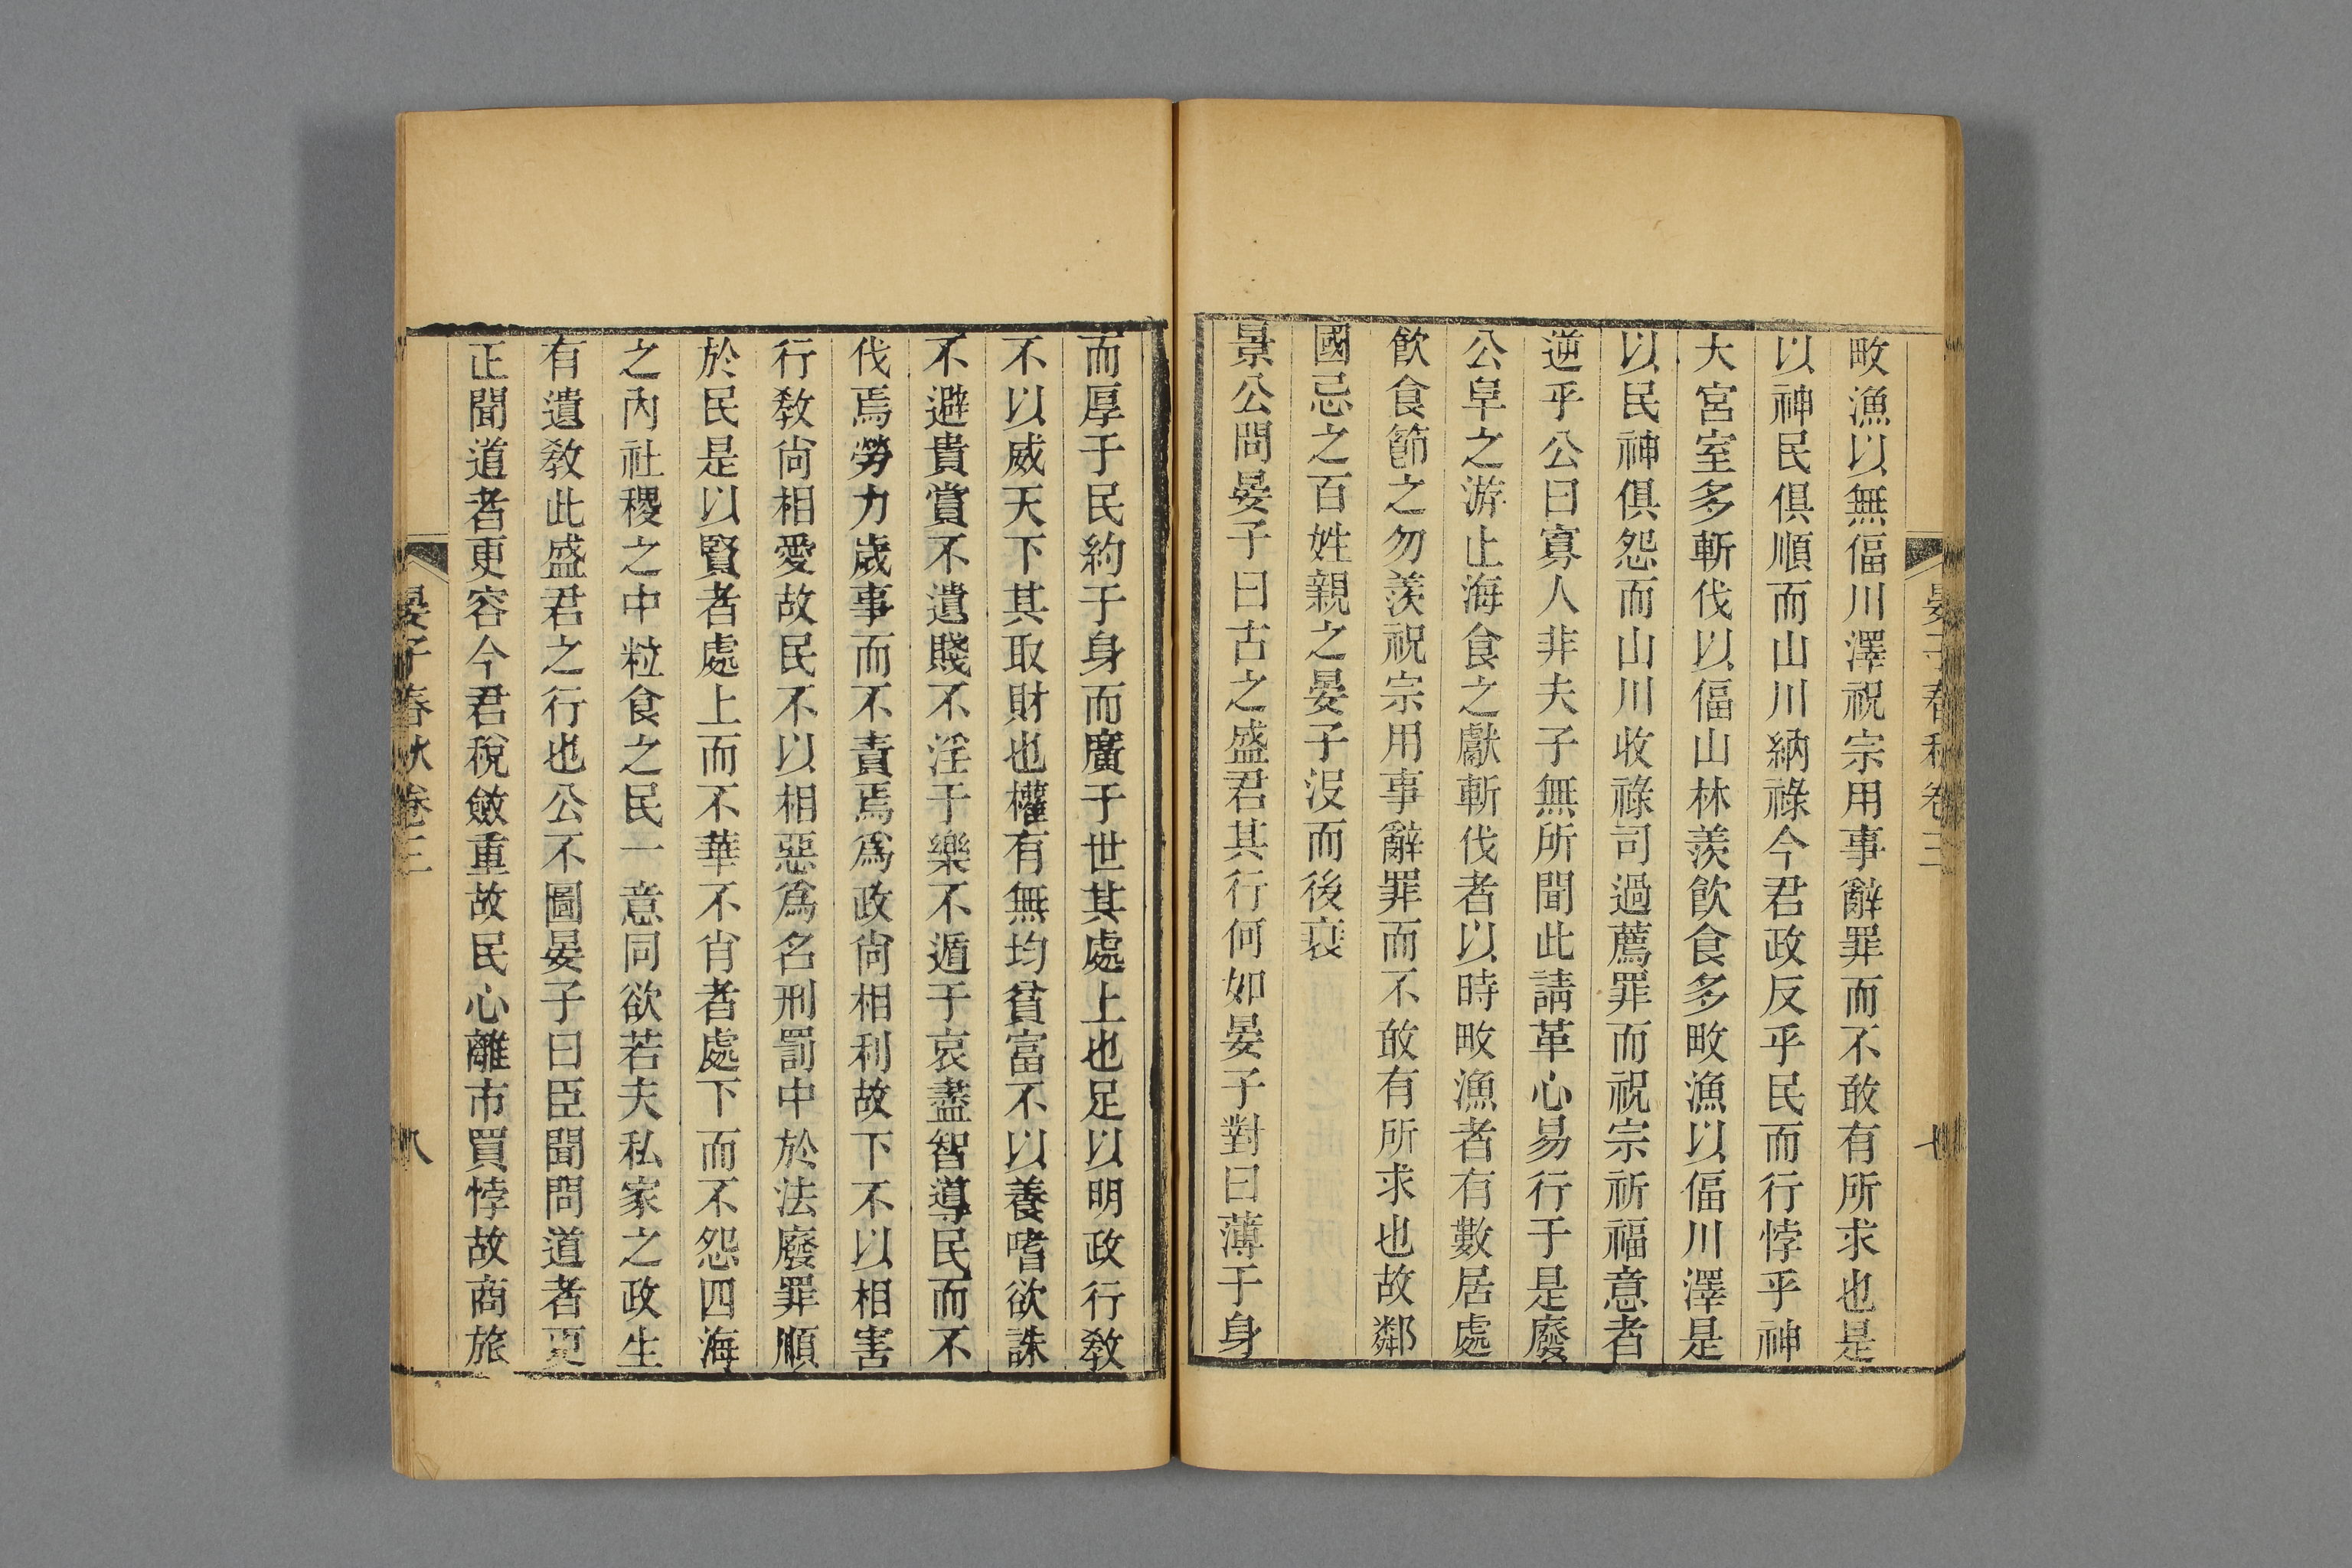 晏子春秋卷三
七
畋漁以無偪川澤祝宗用事辭罪而不敢有所求也是
以神民俱順而山川納祿今君政反乎民而行悖乎神
大宮室多斬伐以偪山林羨飲食多畋漁以偪川澤是
以民神俱怨而山川收祿司過薦罪而祝宗祈福意者
逆乎公曰寡人非夫子無所聞此請革心易行于是廢
公阜之游止海食之獻斬伐者以時畋漁者有數居處
飲食節之勿羨祝宗用事辭罪而不敢有所求也故鄰
國忌之百姓親之晏子沒而後衰
景公問晏子曰古之盛君其行何如晏子對曰薄于身
而厚于民約于身而廣于世其處上也足以明政行教
不以威天下其取財也權有無均貧富不以養嗜欲誅
不避貴賞不遺賤不淫于樂不遁于哀盡智導民而不
伐焉勞力歲事而不責焉為政尚相利故下不以相害
行教尚相愛故民不以相惡為名刑罰中於法廢罪順
於民是以賢者處上而不華不肖者處下而不怨四海
之內社稷之中粒食之民一意同欲若夫私家之政生
有遺教此盛君之行也公不圖晏子曰臣聞問道者更
正聞道者更容今君稅斂重故民心離市買悖故商旅
晏子春秋卷三
八